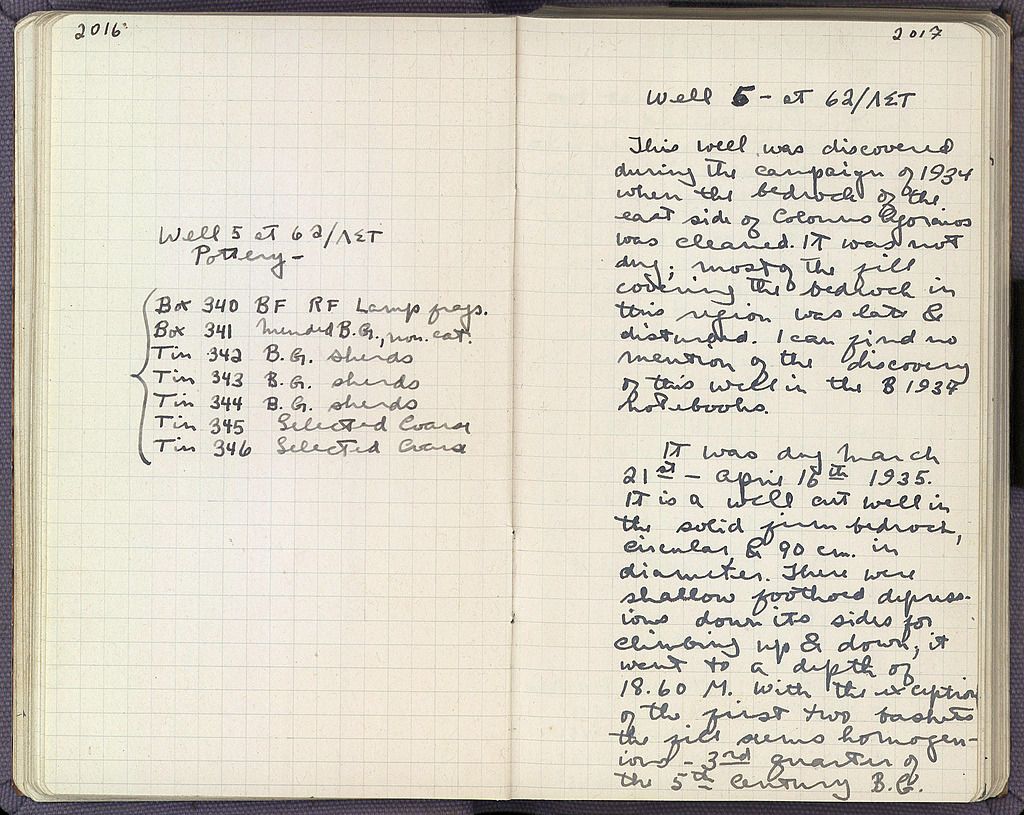 2016
Well 5 at 62/ΛΣΤ
Pottery -
Box 340 BF RF Lamp frags.
Box 341 Mended B.G., non. cat.
Tin 342 B.G. sherds
Tin 343 B.G. sherds
Tin 344 B.G. sherds
Tin 345 Selected Coarse
Tin 346 Selected Coarse
2017
Well 5 - at 62/ΛΣΤ
This well was discovered
during the campaign of 1934
when the bedrock of the
east side of Colonus Agoraios
was cleaned. It was not
dug; most of the fill
covering the bedrock in
this region was late &
disturbed. I can find no
mention of the discovery
of this well in the B 1934
notebooks.
It was dug March
21st - April 16th 1935.
It is a well cut well in
the solid firm bedrock,
circular, & 90 cm. in
diameter. There were
shallow foothold depress-
ions down its sides for
climbing up & down; it
went to a depth of
18.60 M. With the exception
of the first two baskets
the fill seems homogen-
ious - 3rd quarter of
the 5th Century B.C.